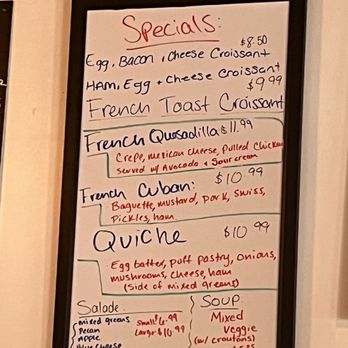 Specials:
$8.50
Egg, Bacon + Cheese Croissant
Ham, Egg + Cheese Croissant
$9.99
French Toast Croissant
French Quesadilla $11.99
Crepe, mexican cheese, Pulled Chicken
Served w/ Avocado + Sour cream
French Cuban: $10.99
Baguette, mustard, pork, swiss,
Pickles, ham
Quiche $10.99
Egg batter, puff pastry, onions,
mushrooms, cheese, ham
(side of mixed greens)
Salade
mixed greens
Pecan
Apple
Blue Cheese
Small $6.99
Large $10.99
Soup:
Mixed
Veggie
(w/ croutons)